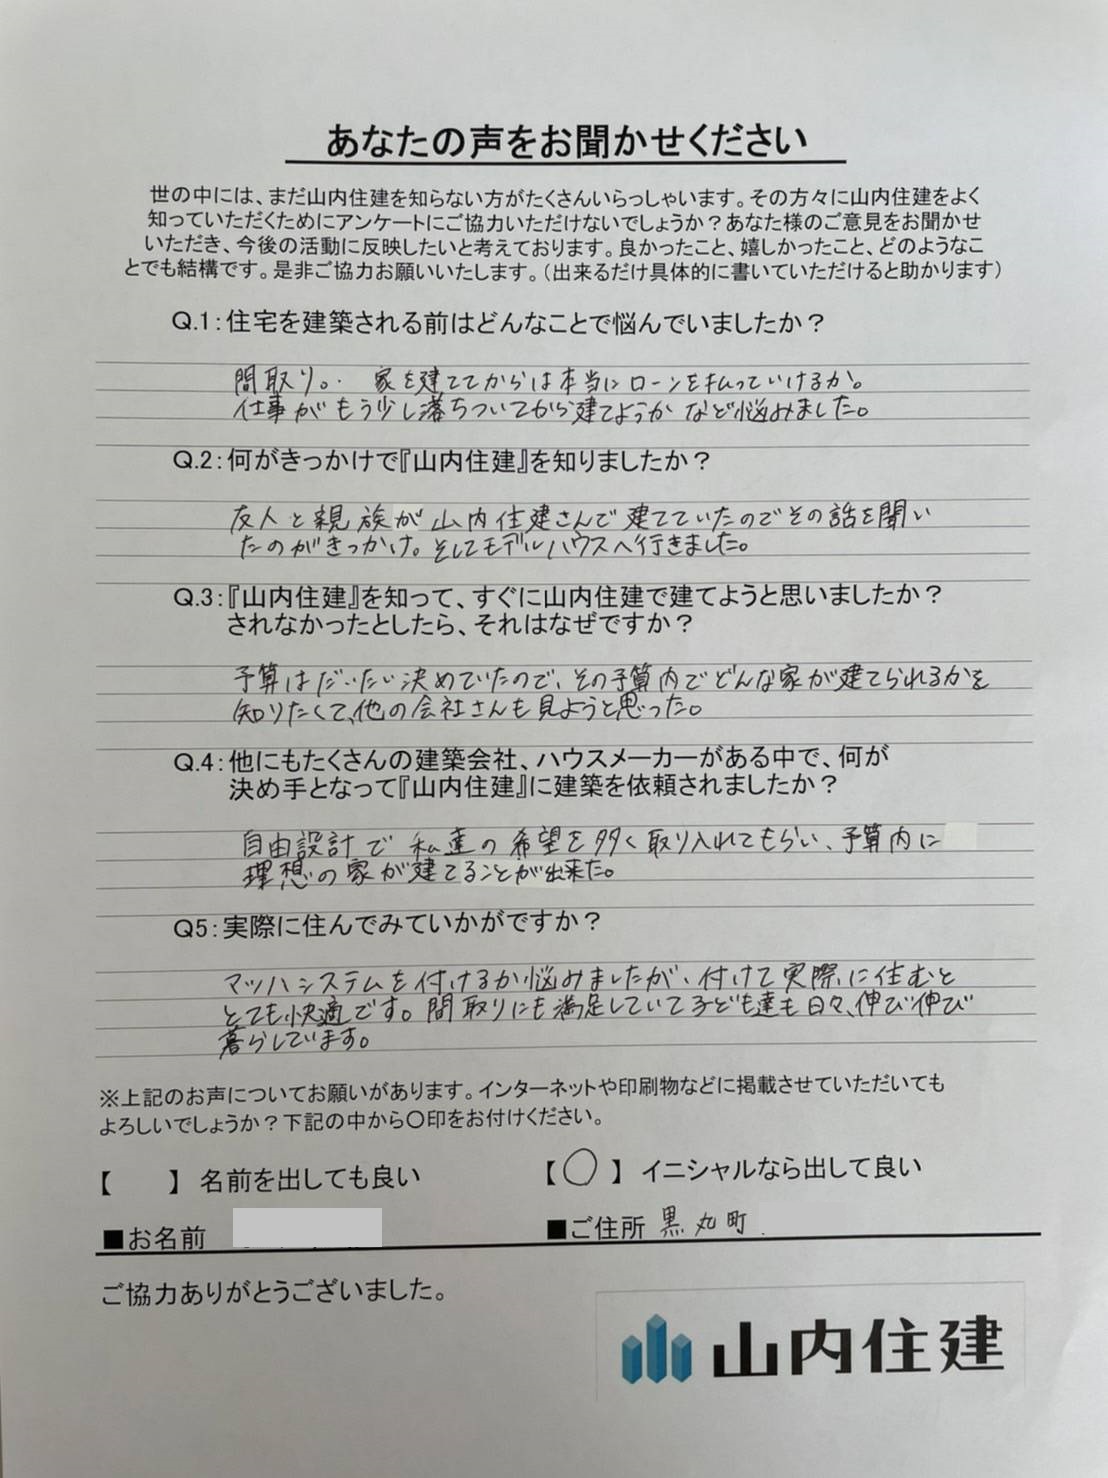 あなたの声をお聞かせください
世の中には、まだ山内住建を知らない方がたくさんいらっしゃいます。その方々に山内住建をよく
知っていただくためにアンケートにご協力いただけないでしょうか？あなた様のご意見をお聞かせ
いただき、今後の活動に反映したいと考えております。良かったこと、嬉しかったこと、どのようなこ
とでも結構です。是非ご協力お願いいたします。（出来るだけ具体的に書いていただけると助かります）
Q.1：住宅を建築される前はどんなことで悩んでいましたか？
間取り。・ 家を建ててからは本当にローンを払っていけるか。
仕事がもう少し落ちついてから建てようかなど悩みました。
Q.2：何がきっかけで『山内住建』を知りましたか？
友人と親族が山内住建さんで建てていたのでその話を聞い
たのがきっかけ。そしてモデルハウスへ行きました。
Q.3：『山内住建』を知って、すぐに山内住建で建てようと思いましたか？
されなかったとしたら、それはなぜですか？
予算はだいたい決めていたので、その予算内でどんな家が建てられるかを
知りたくて、他の会社さんも見ようと思った。
Q.4：他にもたくさんの建築会社、ハウスメーカーがある中で、何が
決め手となって『山内住建』に建築を依頼されましたか？
自由設計で私達の希望を多く取り入れてもらい、予算内に
理想の家が建てることが出来た。
Q5：実際に住んでみていかがですか？
マッハシステムを付けるか悩みましたが、付けて実際に住むと
とても快適です。間取りにも満足していて子ども達も日々、伸び伸び
暮らしています。
※上記のお声についてお願いがあります。インターネットや印刷物などに掲載させていただいても
よろしいでしょうか？下記の中から〇印をお付けください。
【　　】 名前を出しても良い 【〇】 イニシャルなら出して良い
■お名前 ■ご住所 黒丸町
ご協力ありがとうございました。
山内住建